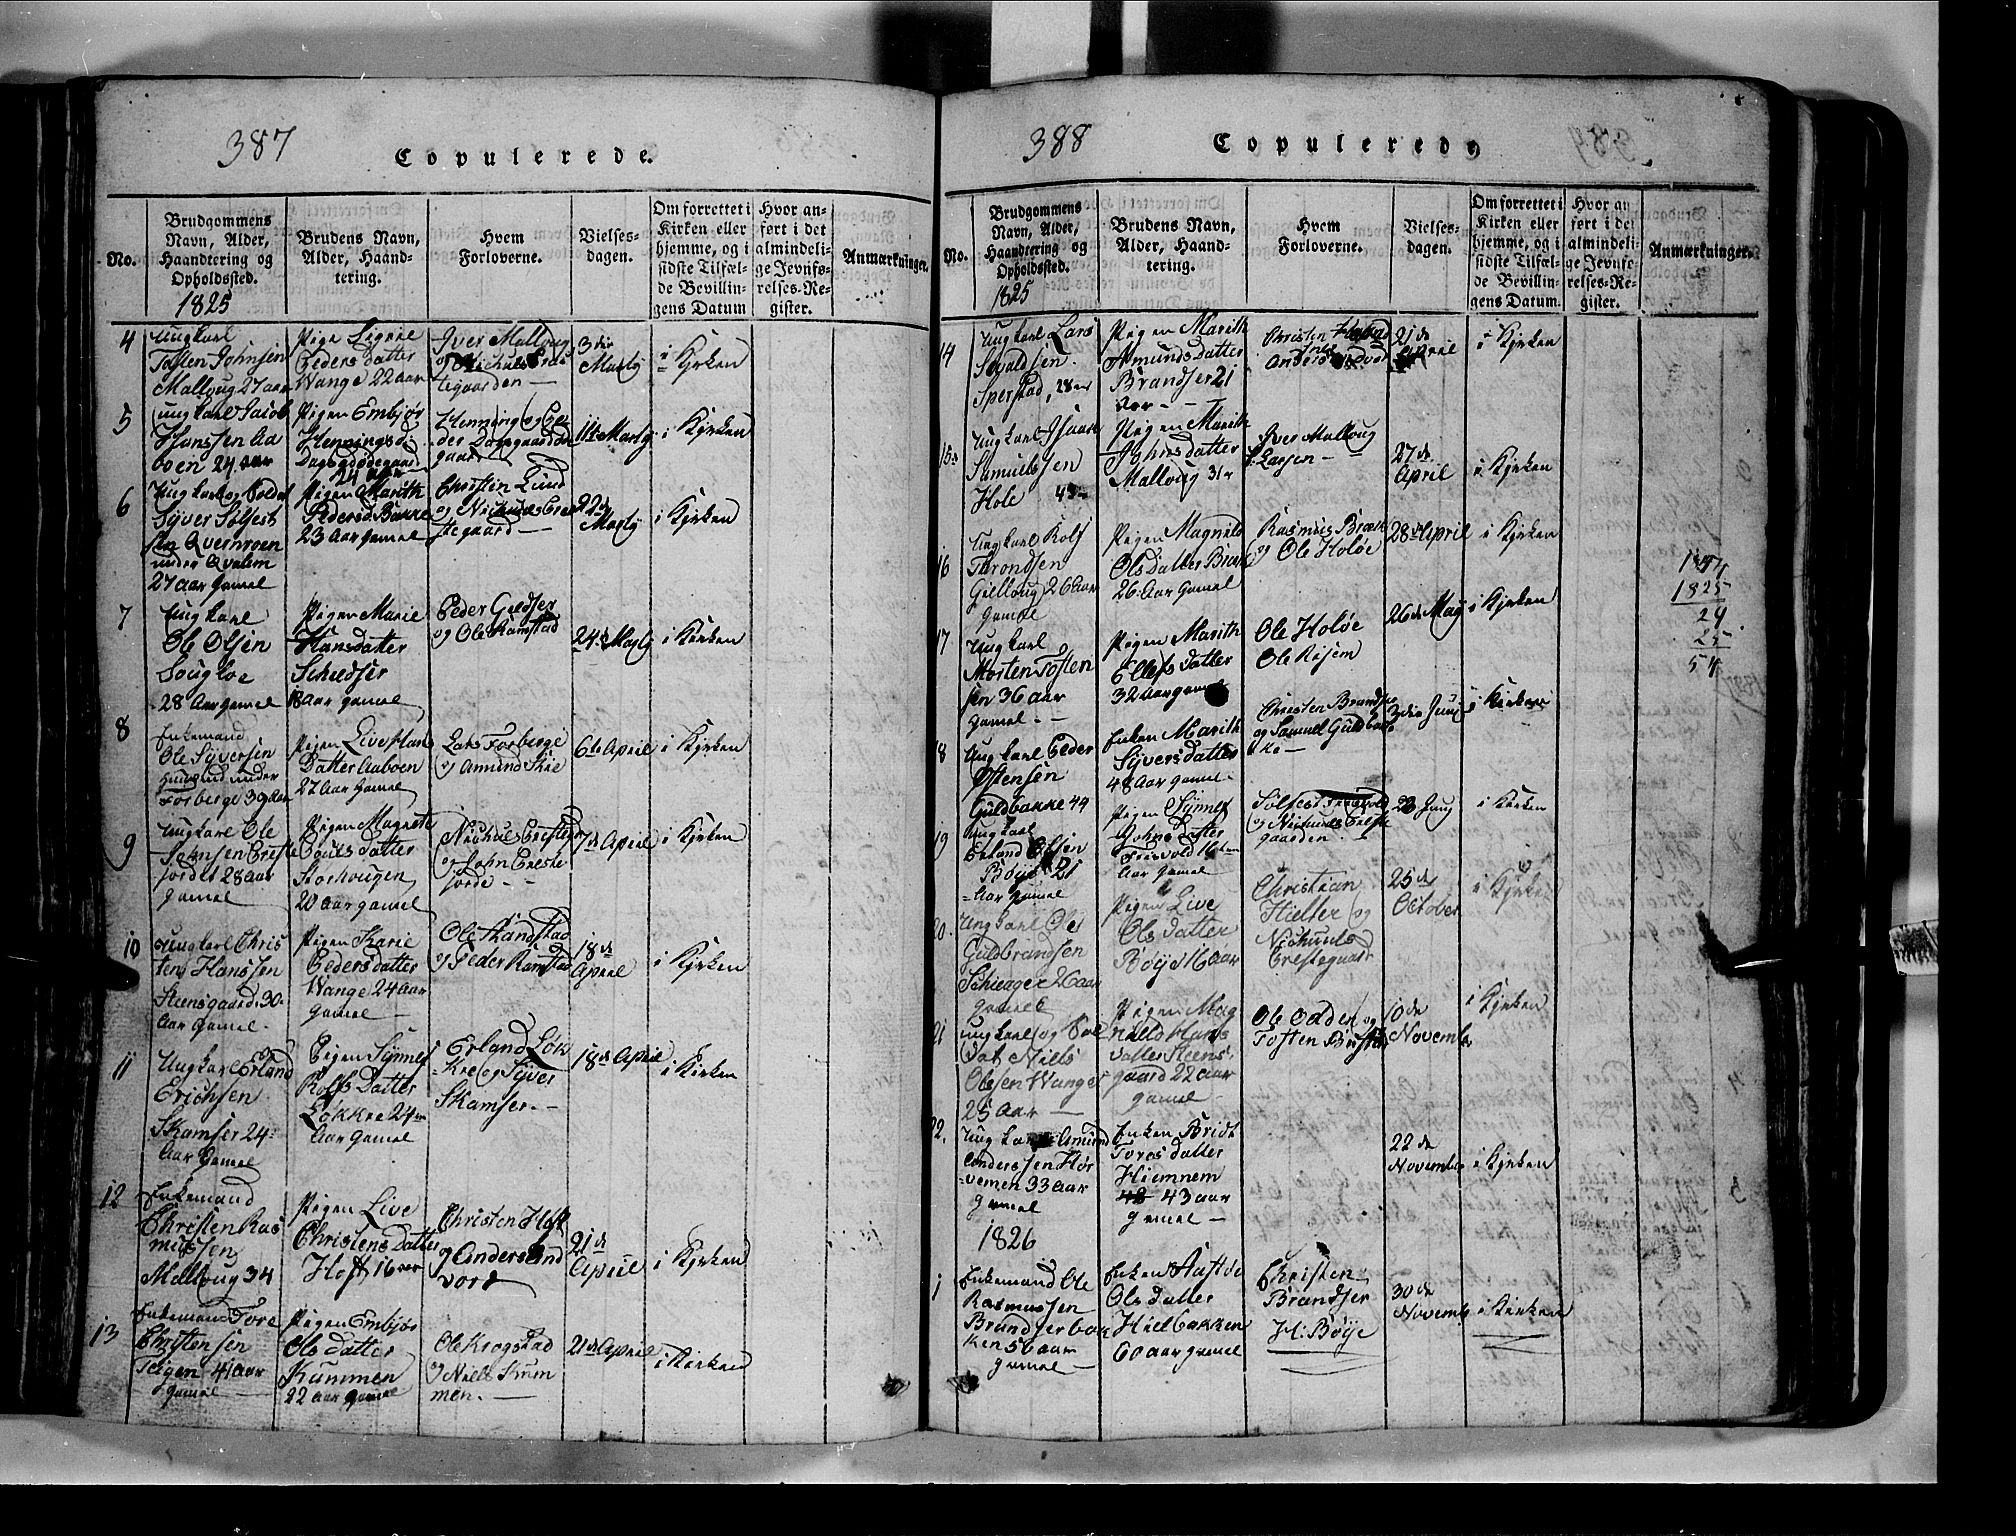 387
Copulerede.
No.
Brudgommens Navn, Alder, Haandtering og Opholdssted.
1825
Brudens Navn, Alder, Haandtering.
Hvem Forloverne.
Vielsesdagen.
Om forrettet i Kirken eller hjemme, og i sidste Tilfælde Bevillingens Datum
Hvor anført i det almindelige Jevnførelses-Register.
Anmærkninger.
4
Ungkarl
Tosten Johnsen
Malloug 27 aar
Pige
Peders datter
Wange 22 aar
Iver Malloug
tegaarden
3die
Martj
i Kjrken
5
Ungkarl Jacob
Hanssen Aa
boen 24 aar
Pigen Embjør
Henningsd:
24 aar
Henning og Pe
der
gaard
11te Martj
i Kjrken
6
Ungkarl og Soldat
Syver Solfest
sen Qvernroen
under Qvalem
27 aar gamel
Pigen Marith
Pedersd Bakke
23 Aar gamel
Christen Lund
og
tegaard
22de
Martj
i Kjrken
7
Ungkarl
Ole Olsen
Sougloe
28 Aar gamel
Pigen Marie
Hansdatter
Schiedser
18 Aar gamel
Peder Guldser
og Ole Ramstad
24de Martj
i Kirken
8
Enkemand
Ole Syversen
Huusmd under
Forberge 39 Aar
Pigen Live Hans
Datter Aaboen
27 Aar Gamel
Lars Forberge
og Amund Skie
6te April
i Kjrken
9
Ungkarl Ole
Johnsen Preste
jordet 28 aar
gamel
Pigen Magnete
Pouls datter
Storhougen
20 Aar gamel
og John Preste
jorde
7de April
i Kjrken
10
Ungkarl Chris
ten Hanssen
Steensgaard 30
Aar Gamel
Pigen Karie
Pedersdatter
Wange 24 aar
gamel
Ole Randstad
og Peder Ramstad
18de
April
i Kjrken
11
Ungkarl Erland
Erichsen
Skamser 24
Aar Gamel
Pigen Synnef
Rolfs Datter
Løkkre 24
Aar Gamel
Erland Løk
kre og Syver
Skamser
18de April
i Kirken
12
Enkemand
Christen Ras
mussen
Malloug 34
Pigen Live
Christens Datter
Hoft 16
Christen Hoft
og Anders And
vord
21de
April
i Kjrken
13
Enkeman Tore
Christensen
Teigen 41 aar
gamel
Pigen Embjør
Ols datter
Kummen
22 aar gamel
Ole Krogstad
og Niels Kum
men
21de April
i Kirken
388
Copulerede
No.
Brudgommens Navn, Alder, Haandtering og Opholdssted.
1825
Brudens Navn, Alder, Haandtering.
Hvem Forloverne.
Vielsesdagen.
Om forrettet i Kirken eller hjemme, og i sidste Tilfælde Bevillingens Datum.
Hvor anført i det almindelige Jevnførelses-Register.
Anmærkninger.
14
Ungkarl Lars
Sevaldsen
Sperstad, 28 aar
Pigen Marith
Amundsdatter
Brandser 21
Aar
Christen
Anders Andvord
21de
April
i Kjrken
15
Ungkarl Isaach
Samuelssen
Hole 43
Pigen Marith
Johnsdatter
Malloug 31
Iver Malloug
Larsen
27de
April
i Kjrken
16
Ungkarl Rolf
Trondsen
Gielloug 26 Aar
gamel
Pigen Magnild
Ols datter
26 Aar gamel
Rasmus
og Ole Holøe
28de April
i Kjrken
17
Ungkarl
Morten Tosten
sen 36 aar
gamel
Pigen Marith
Ellefs datter
32 Aar gamel
Ole Holøe
Ole Risem
26de Maj
i Kjrken
18
Ungkarl Peder
Ostensen
Guldbakke 44
Enken Marith
Syversdatter
48 Aar gamel
Christen Brandser
og Samuel Guldbak
ke
3die Junj
i Kirken
19
Ungkarl
Erland Olsen
Bøye 21
Aar gamel
Pigen Synnef
Johns Datter
Frisvold 16
Aar gamel
Solfest Frisvold
gaarden
23 Junj
i Kirken
20
Ungkarl Ole
Guldbrandsen
Schieager 26 aar
gamel
Pigen Live
Ols datter
Bøye 16 aar
Christian
Hielter og
Prestegaard
25de
October
i Kjrken
21
Ungkarl og Sol
dat Niels
Olesen Wange
25 Aar
Pigen Mag
nild Hans
datter Steens
gaard 22 aar
gamel
Ole Odden og
Tosten
10de
Novembr
i Kjrken
22.
Ungkarl Amund
Anderssen Hør
vemen 33 aar
gamel
Enken Bridt
Tores datter
Hiemnem
43 aar
gamel
22de
Novembr
i Kjrken
1826
1
Enkemand Ole
Rasmussen
Brandserbak
ken 56 aar
gamel
Enken Aastøe
Ols datter
Hielbakken
60 aar gamel
Christen
Brandser
H: Bøye
30de
Novemb
i Kirken
1825
24
25
54